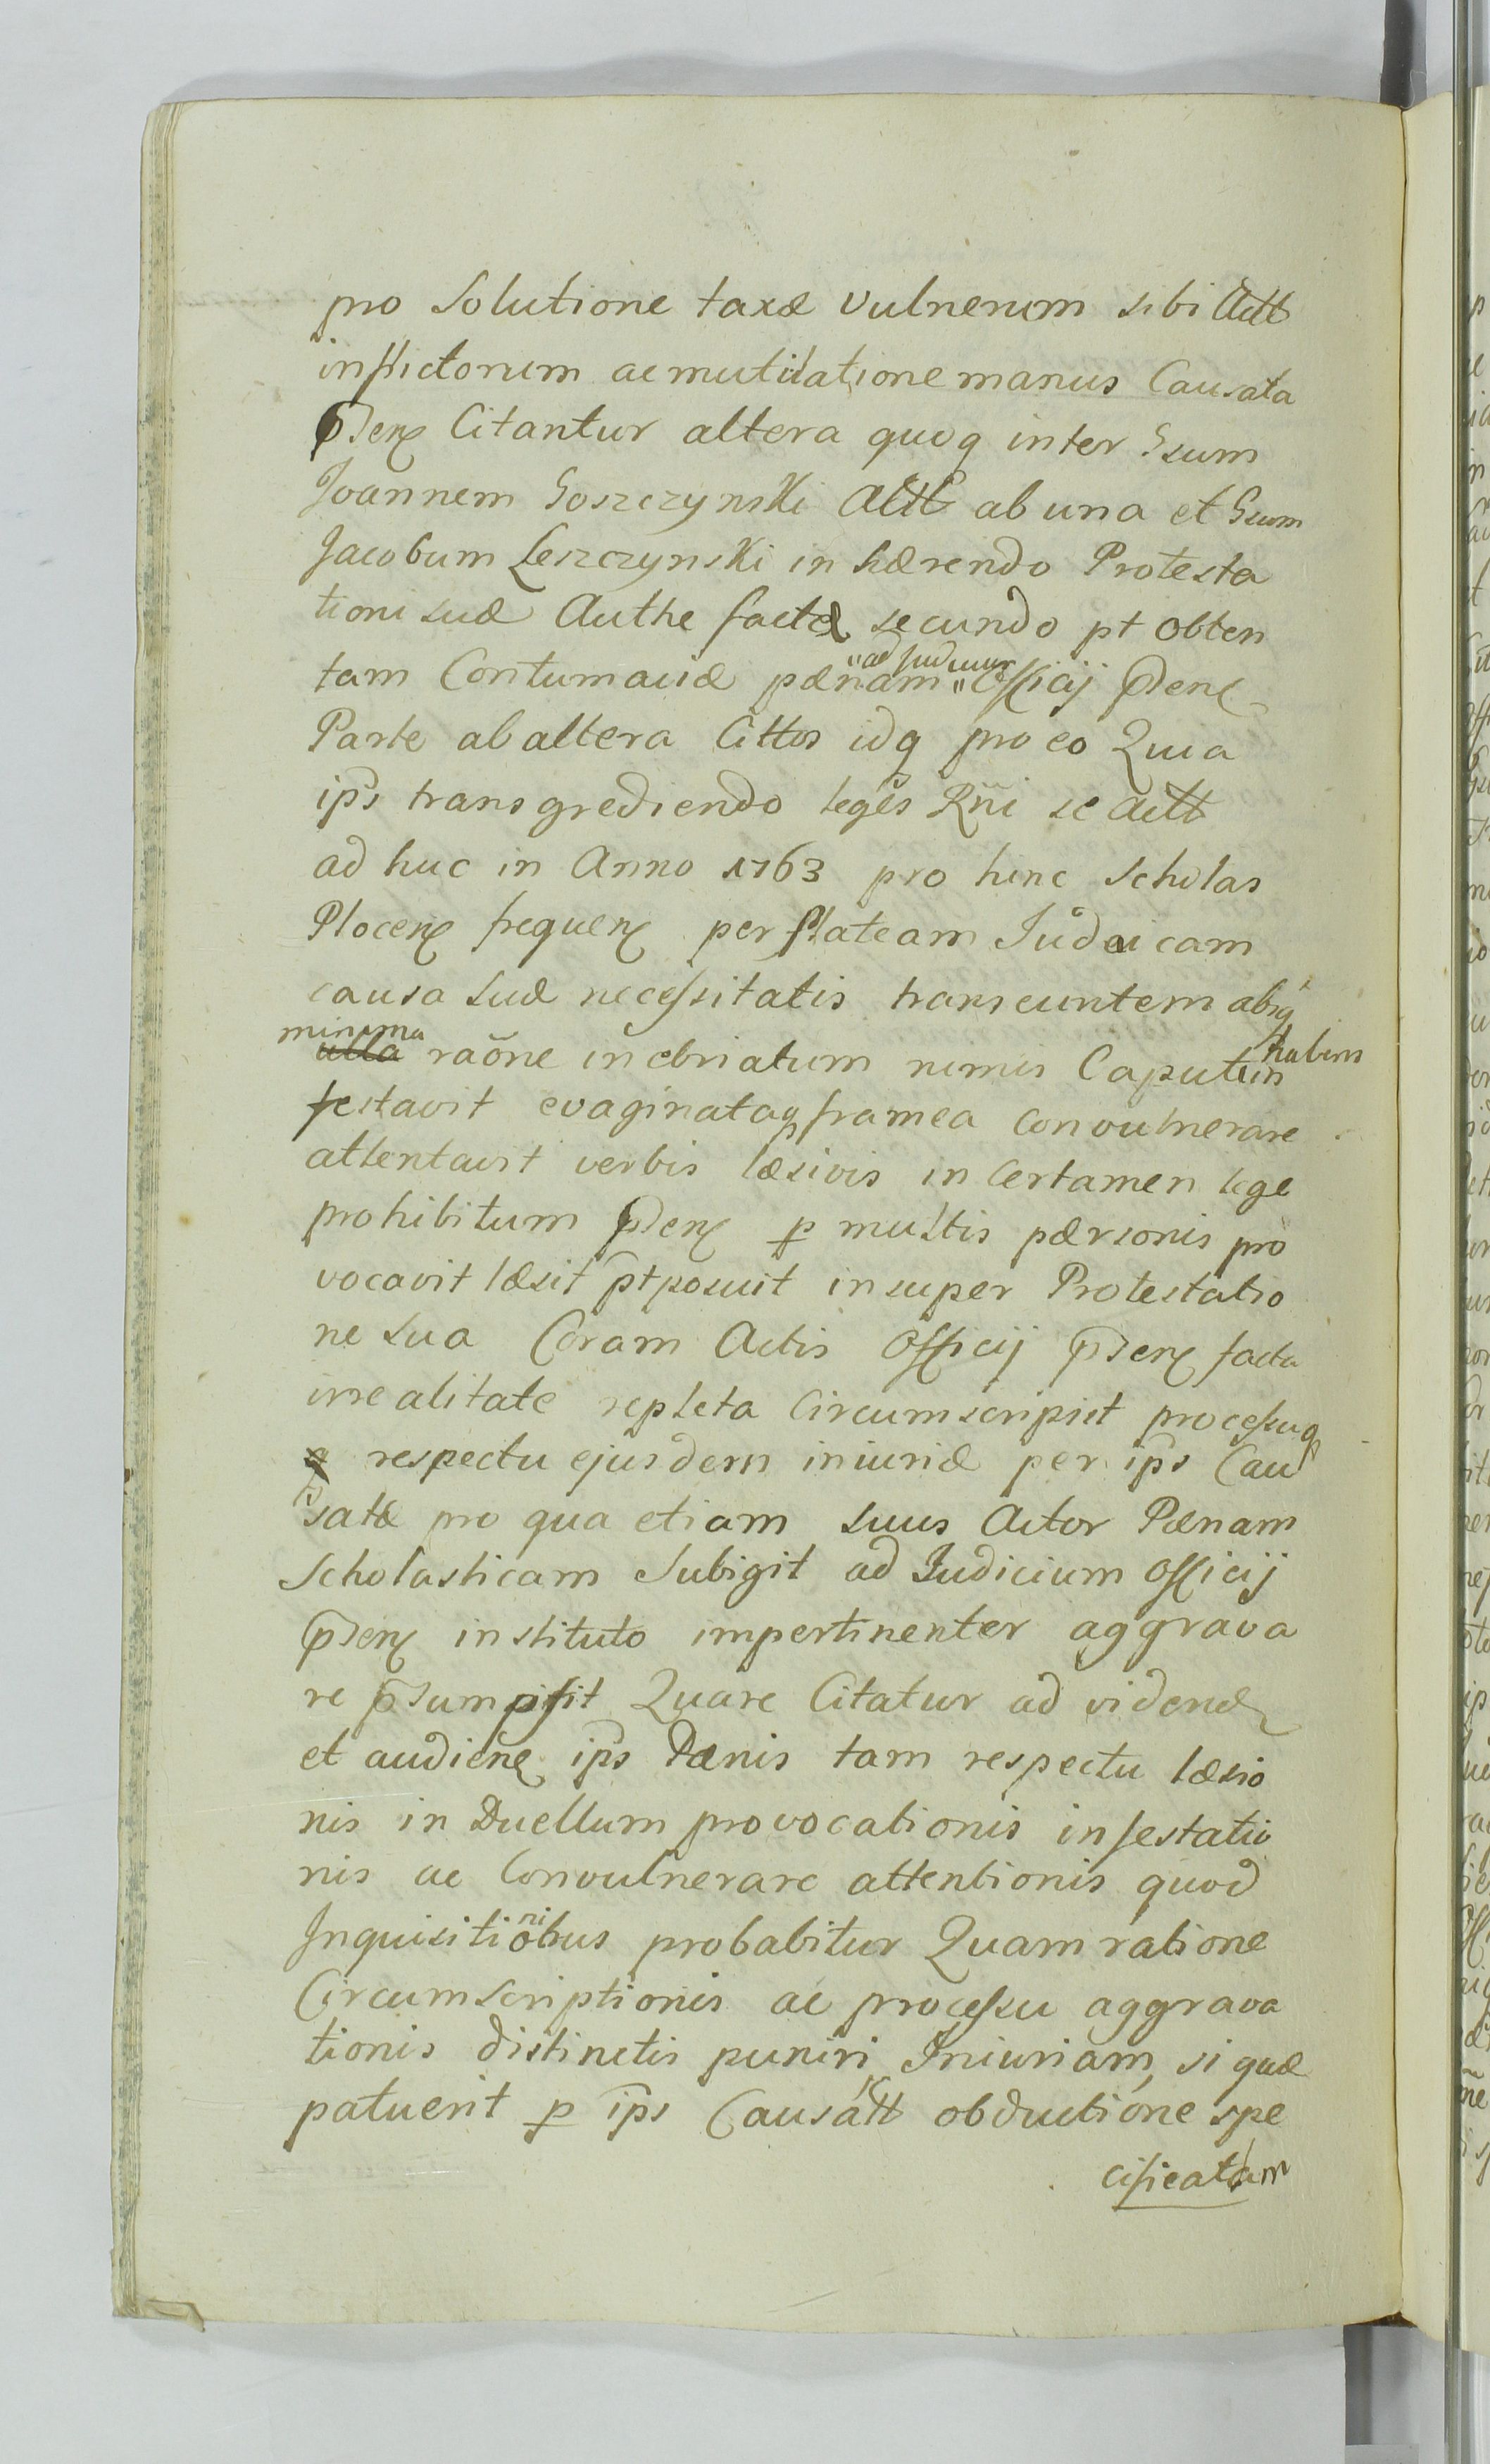 pro Solutione taxæ vulnerum sibi Actt
inflictorum ac mutilatione manus Causata
p̃senꝭ Citantur altera quoq inter Gsum
Joannem Goszczynski Actt ab una et Gsum
Jacobum Leszczynski in hærendo Protesta
tioni suæ Authe factæ secundo pt obten
tam Contumaciæ pænam "ad Judicium" Officij p̃senꝭ
Parte ab altera Cittos idq pro eo Quia
ip̃s transgrediendo leges Rñi se Actt
ad huc in Anno 1763 pro hinc Scholas
Plocenꝭ frequenꝭ per plateam Judaicam
causa suæ necessitatis transeuntem absq
minima raõne inebriatum nimis Caput habens in
festavit evaginataq framea Convulnerare
attentavit verbis læsivis in Certamen lege
prohibitum p̃senꝭ p multis pærsonis pro
vocavit læsit p̃tposuit insuper Protestatio
ne sua Coram Actis Officij p̃senꝭ facta
irrealitate repleta Circumscripsit processuq
respectu ejusdem iniuriæ per ip̃s Cau
satæ pro qua etiam suus Actor Pænam
Scholasticam Subigit ad Judicium Officij
p̃senꝭ instituto impertinenter aggrava
re p̃sumpsit Quare Citatur ad videnꝭ
et audienꝭ ip̃s Pænis tam respectu læsio
nis in Duellum provocationis infestatio
nis ac Convulnerare attentionis quod
Inquisitionibus probabitur Quam ratione
Circumscriptionis ac processu aggrava
tionis distinctis puniri Iniuriam, si quæ
patuerit p ip̃s Causatt obductione spe
cificatam